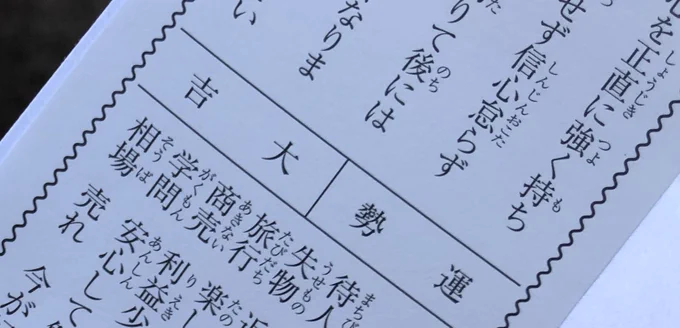 を正直に強く持ち
せず信心怠らず
りて後には
なりま
い
運勢 大吉
待人
失物
旅行 楽し
商売 利益少
学問 安心して
相場 売れ 今が